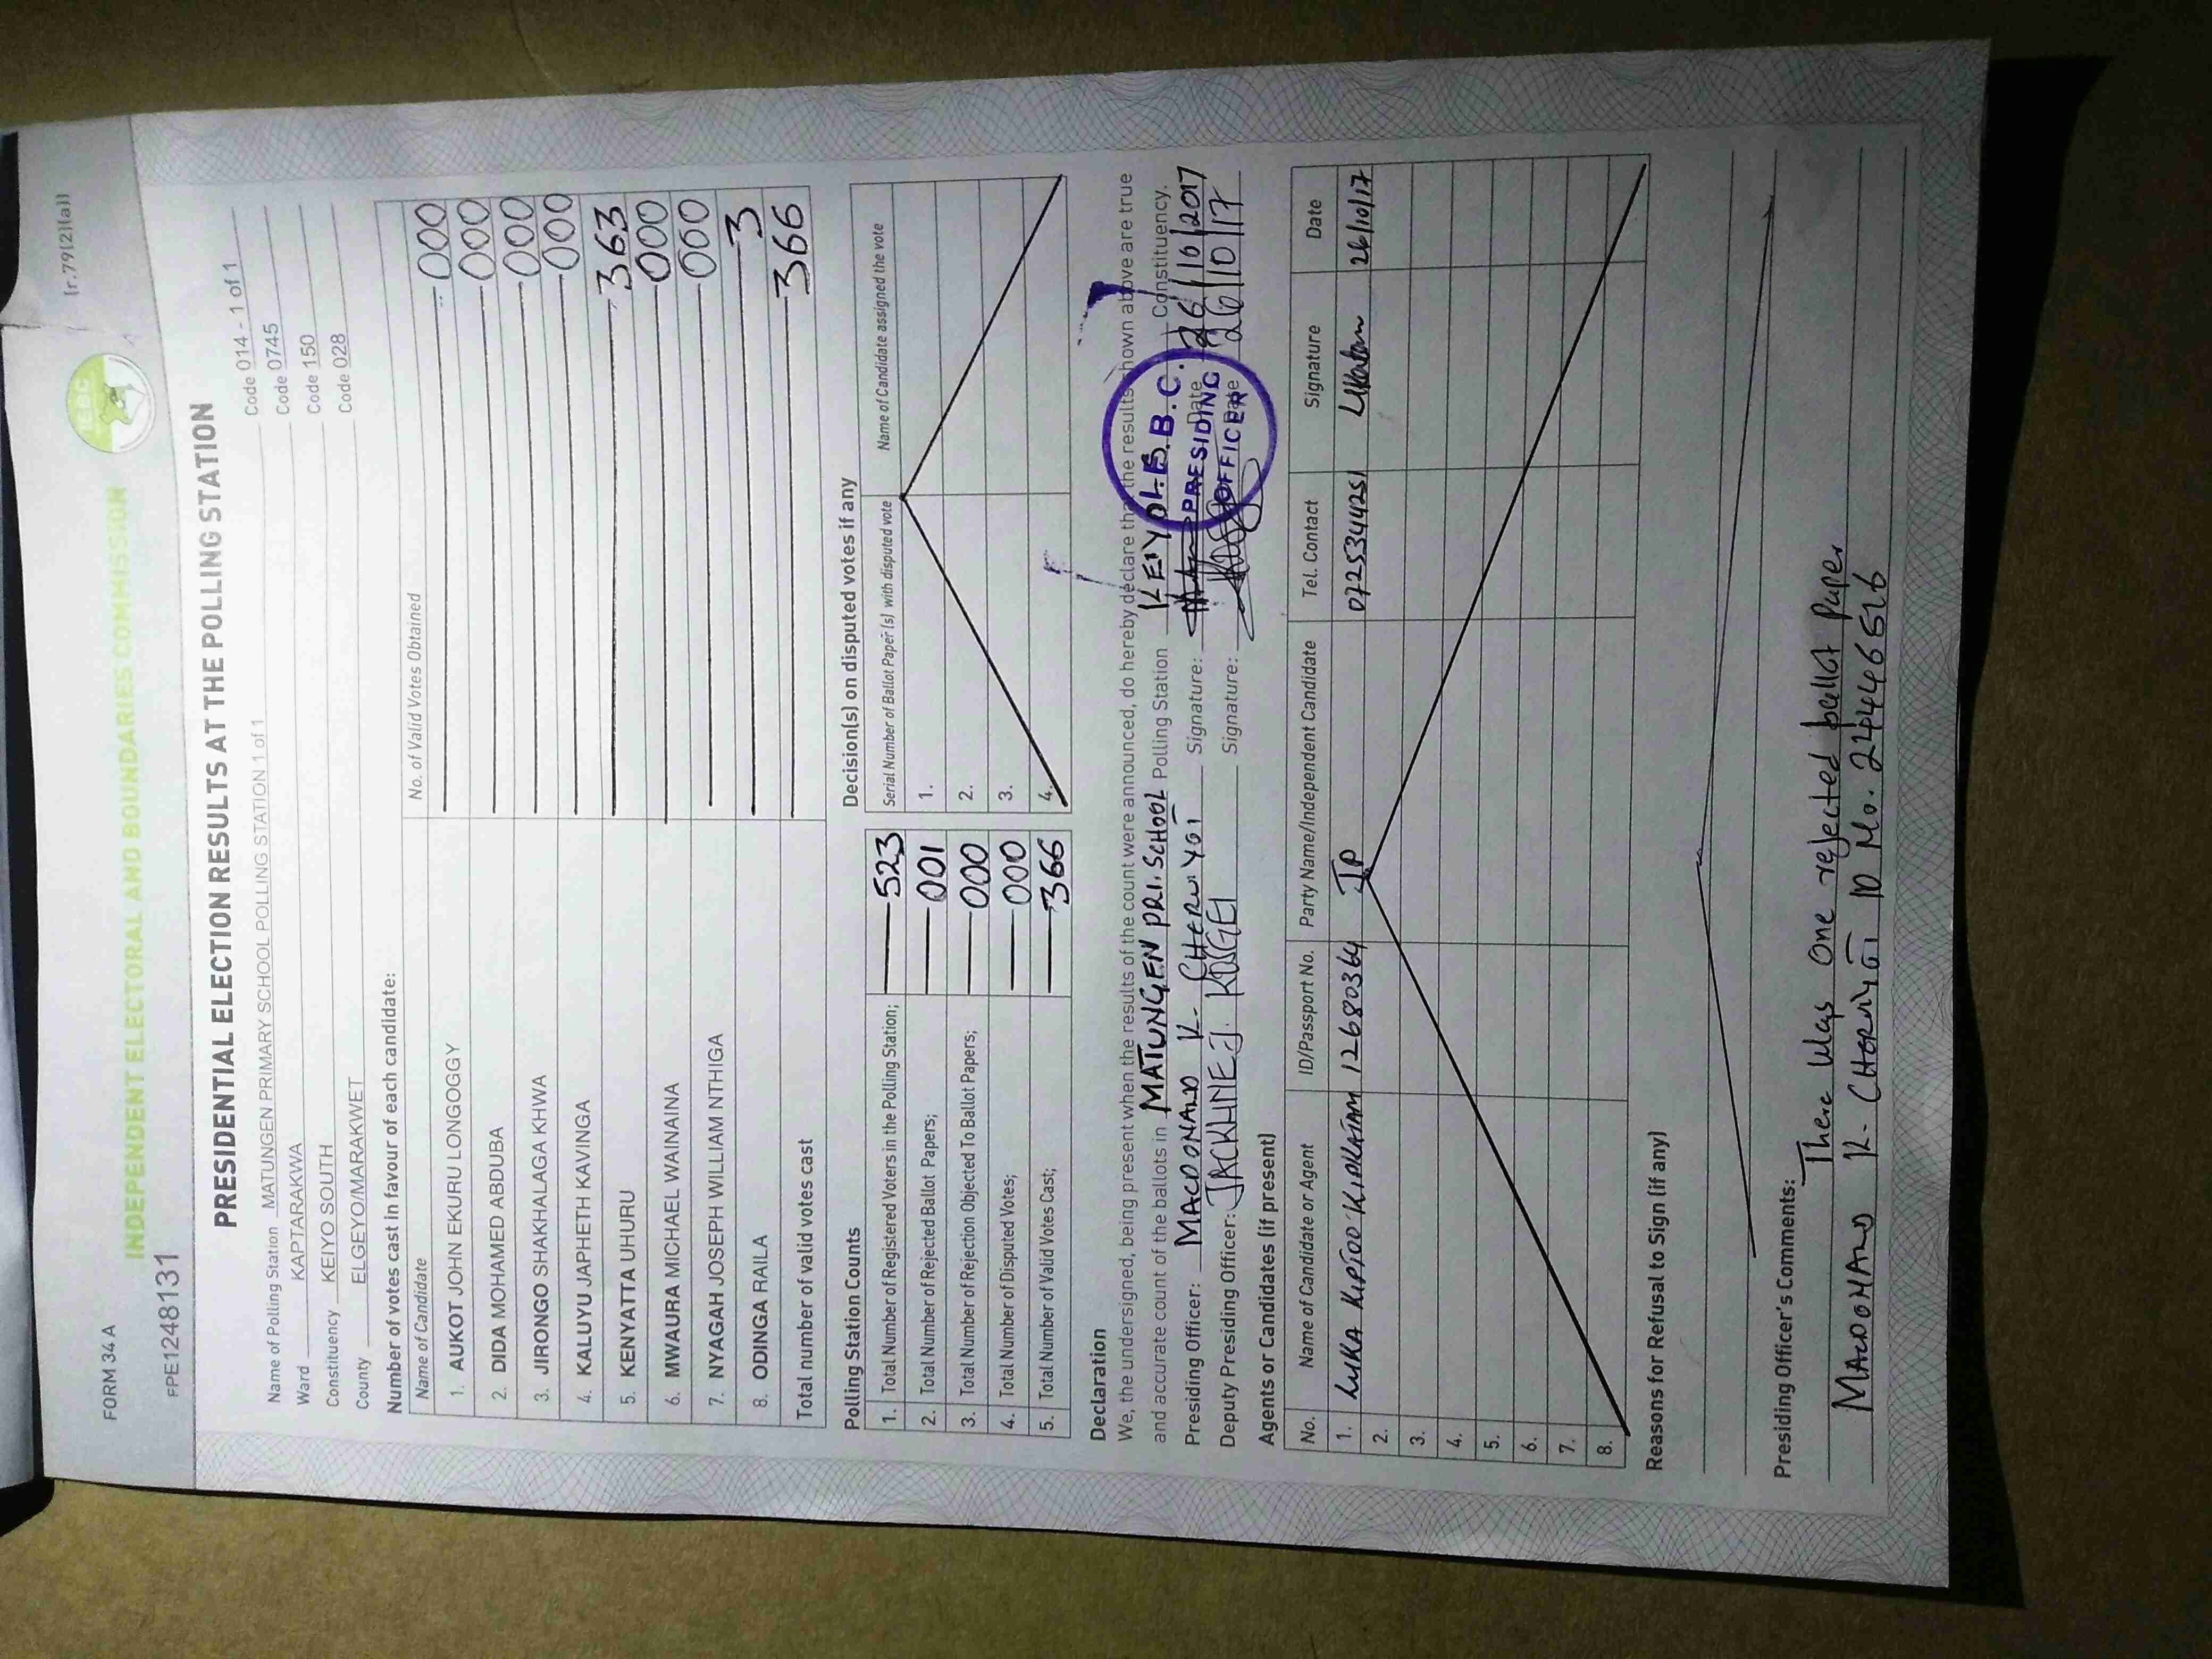 FORM 34 A
(r.79(2)(a))
FPE1248131
IEBC
INDEPENDENT ELECTORAL AND BOUNDARIES COMMISSION
PRESIDENTIAL ELECTION RESULTS AT THE POLLING STATION
Name of Polling Station MATUNGEN PRIMARY SCHOOL POLLING STATION 1 of 1 Code 014 - 1 of 1
Ward KAPTARAKWA Code 0745
Constituency KEIYO SOUTH Code 150
County ELGEYO/MARAKWET Code 028
Number of votes cast in favour of each candidate:
Name of Candidate No. of Valid Votes Obtained
1. AUKOT JOHN EKURU LONGOGGY 000
2. DIDA MOHAMED ABDUBA 000
3. JIRONGO SHAKHALAGA KHWA 000
4. KALUYU JAPHETH KAVINGA 000
5. KENYATTA UHURU 363
6. MWAURA MICHAEL WAINAINA 000
7. NYAGAH JOSEPH WILLIAM NTHIGA 000
8. ODINGA RAILA 3
Total number of valid votes cast 366
Polling Station Counts
1. Total Number of Registered Voters in the Polling Station; 523
2. Total Number of Rejected Ballot Papers; 001
3. Total Number of Rejection Objected To Ballot Papers; 000
4. Total Number of Disputed Votes; 000
5. Total Number of Valid Votes Cast; 366
Decision(s) on disputed votes if any
Serial Number of Ballot Paper (s) with disputed vote Name of Candidate assigned the vote
1.
2.
3.
4.
Declaration
We, the undersigned, being present when the results of the count were announced, do hereby declare that the results shown above are true
and accurate count of the ballots in MATUNGEN PRI. SCHOOL Polling Station KEIYO Constituency.
Presiding Officer: MACDONALD K. CHERUIYOT Signature: Date 26/10/2017
Deputy Presiding Officer: JACKLINE J. KOSGEI Signature: Date 26/10/17
I.E.B.C.
PRESIDING
OFFICER
Agents or Candidates (if present)
No. Name of Candidate or Agent ID/Passport No. Party Name/Independent Candidate Tel. Contact Signature Date
1. LUKA KIPTOO KIPLAGAT 12680364 JP 0725344251 26/10/17
2.
3.
4.
5.
6.
7.
8.
Reasons for Refusal to Sign (if any)
Presiding Officer's Comments: There was one rejected ballot paper
MACDONALD K. CHERUIYOT ID No. 24446626